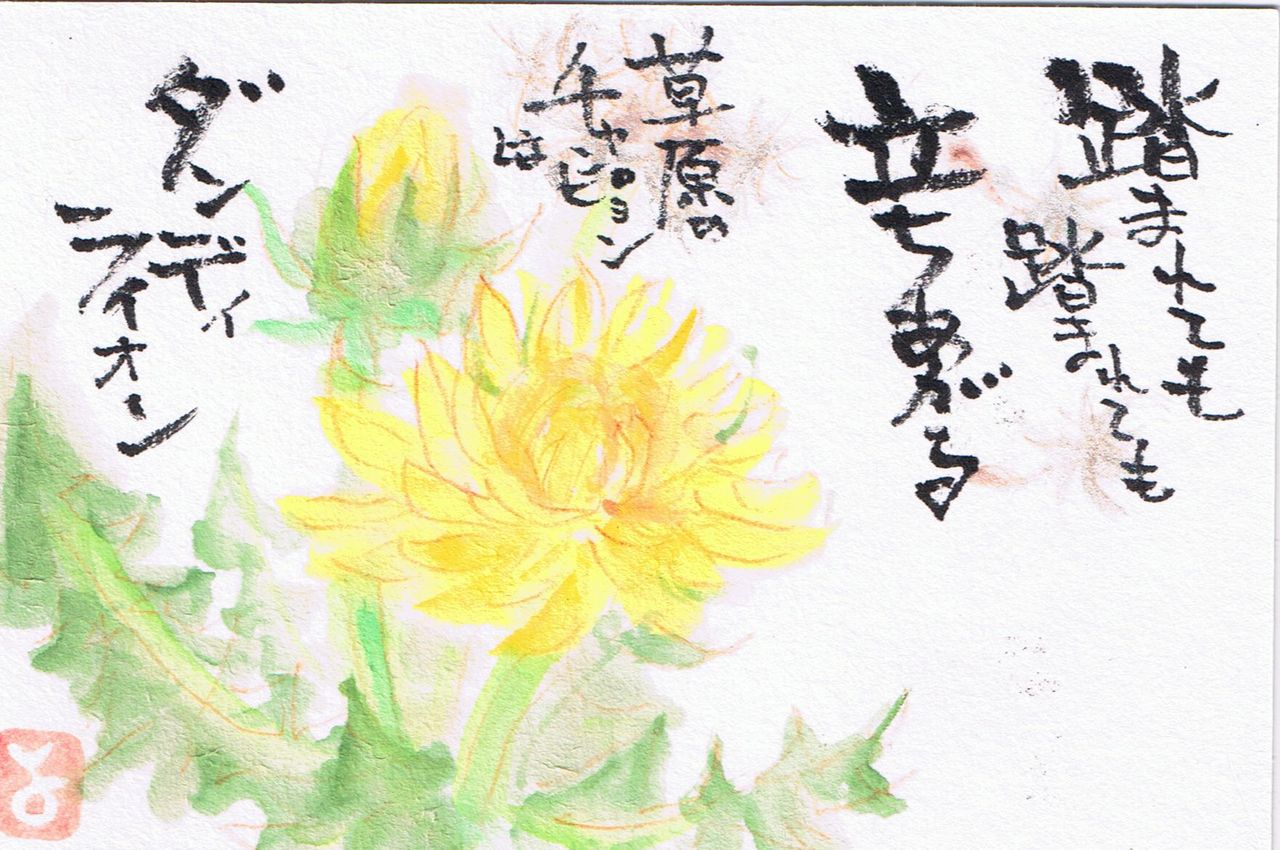 踏まれても
踏まれても
立ち上がる
草原の
チャンピョン
は
ダンディ
ライオン